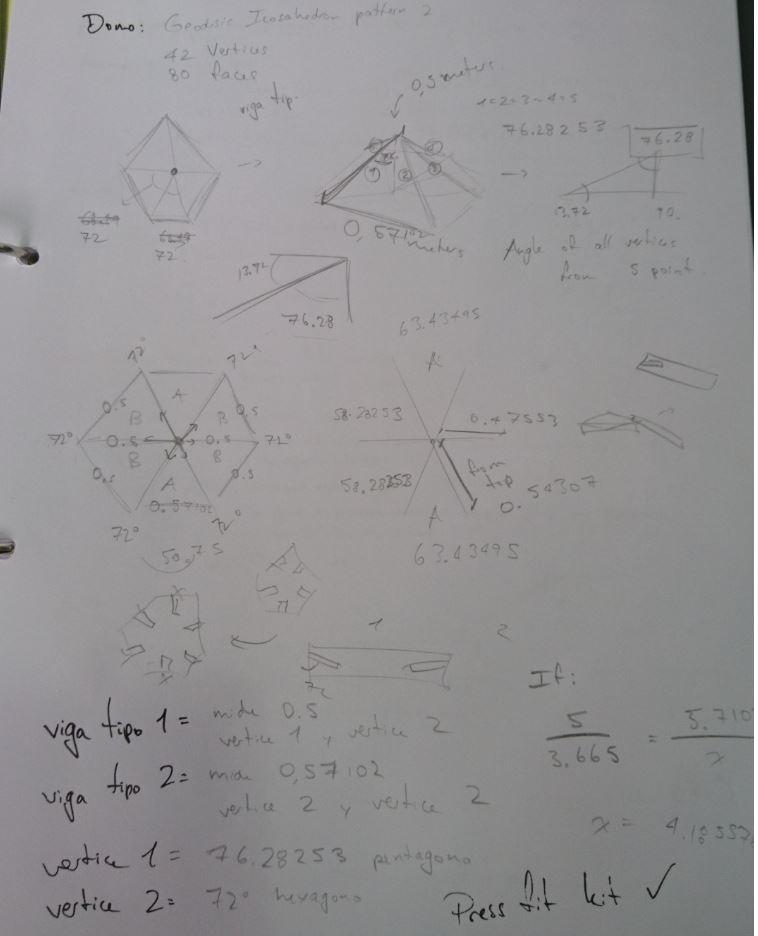 Domo: Geodisic Icosahedron pattern 2
42 Vertices
80 faces
viga tip.
0,5 meters.
1=2=3=4=5
76.28253
76.28
1
2
3
72
72
0,57102 meters
13.72
90.
Angle of all vertices
from 5 point.
13.72
76.28
63.43495
72°
72°
A
A
0.5
B
B
0.5
58.28253
0.47553
72°
0.5
0.5
72°
B
B
0.5
A
0.5
58.28253
from
top
0.54307
0.57102
72°
72°
A
50,75
63.43495
1
2
If:
viga tipo 1 = mide 0.5
vertice 1 y vertice 2
5
3.665
=
5.710
x
viga tipo 2 = mide 0,57102
vertice 2 y vertice 2
x =
vertice 1 = 76.28253 pentagono
vertice 2 = 72° hexagono
Press fit kit ✓